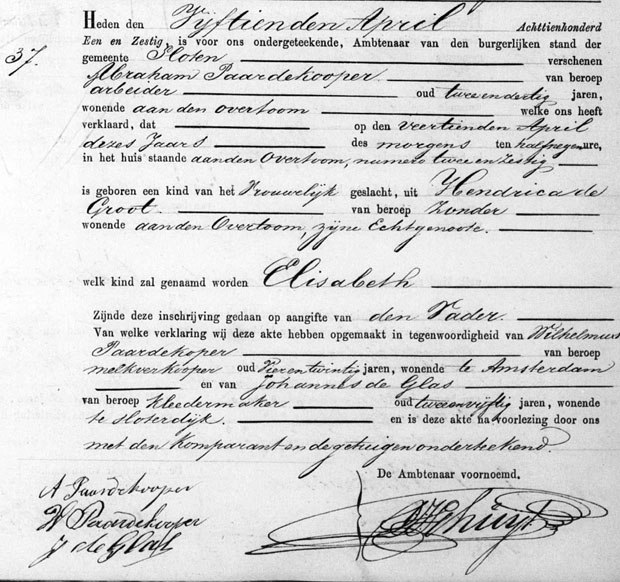 Heden den Vijftienden April Achttienhonderd
Een en Zestig, is voor ons ondergeteekende, Ambtenaar van den burgerlijken stand der
37.
gemeente Sloten verschenen
Abraham Paardekooper van beroep
arbeider oud twee en dertig jaren,
wonende aan den overtoom welke ons heeft
verklaard, dat op den veertienden April
dezes Jaars des morgens ten half negen ure,
in het huis staande aan den Overtoom, numero twee en zestig
is geboren een kind van het Vrouwelijk geslacht, uit Hendrica de
Groot. van beroep Zonder
wonende aan den Overtoom, zijne Echtgenoote.
welk kind zal genaamd worden Elisabeth
Zijnde deze inschrijving gedaan op aangifte van den Vader.
Van welke verklaring wij deze akte hebben opgemaakt in tegenwoordigheid van Wilhelmus
Paardekoper van beroep
melkverkooper oud Vier en twintig jaren, wonende te Amsterdam
en van Johannes de Glas
van beroep Kleedermaker oud twee en vijftig jaren, wonende
te Sloterdijk. en is deze akte na voorlezing door ons
met den Komparant en de getuigen onderteekend.
De Ambtenaar voornoemd,
A Paardekooper
W Paardekooper
J de Glas